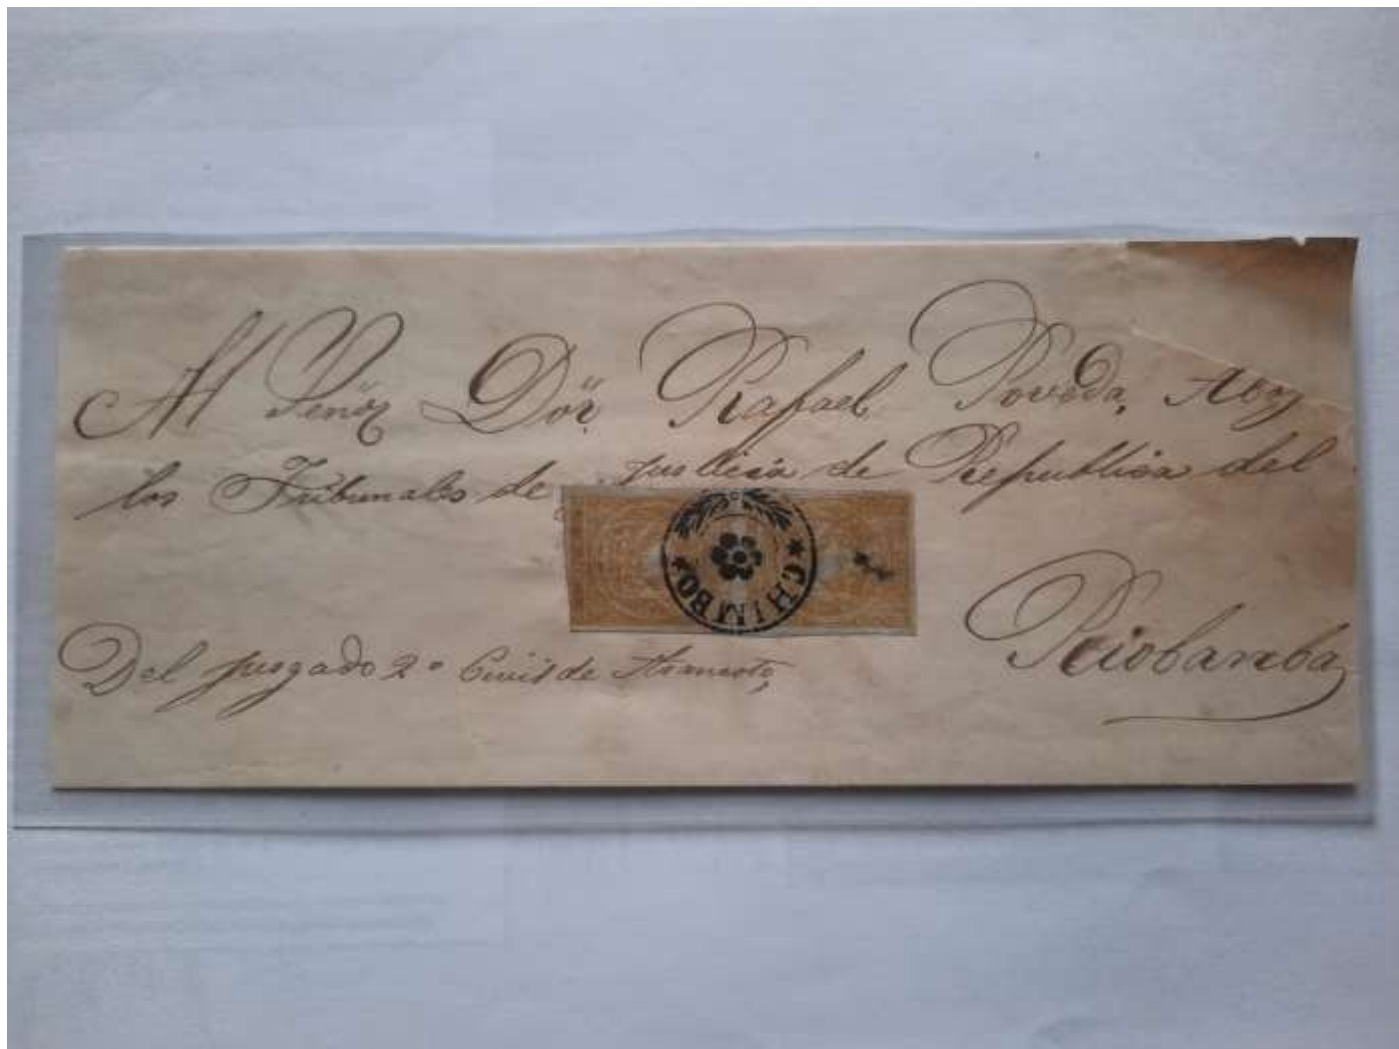 Al Señor Dör. Rafael Poveda, Abog
los Tribunales de Justicia de Republica del
CHIMBO
Riobamba,
Del jusgado 2º Civil de